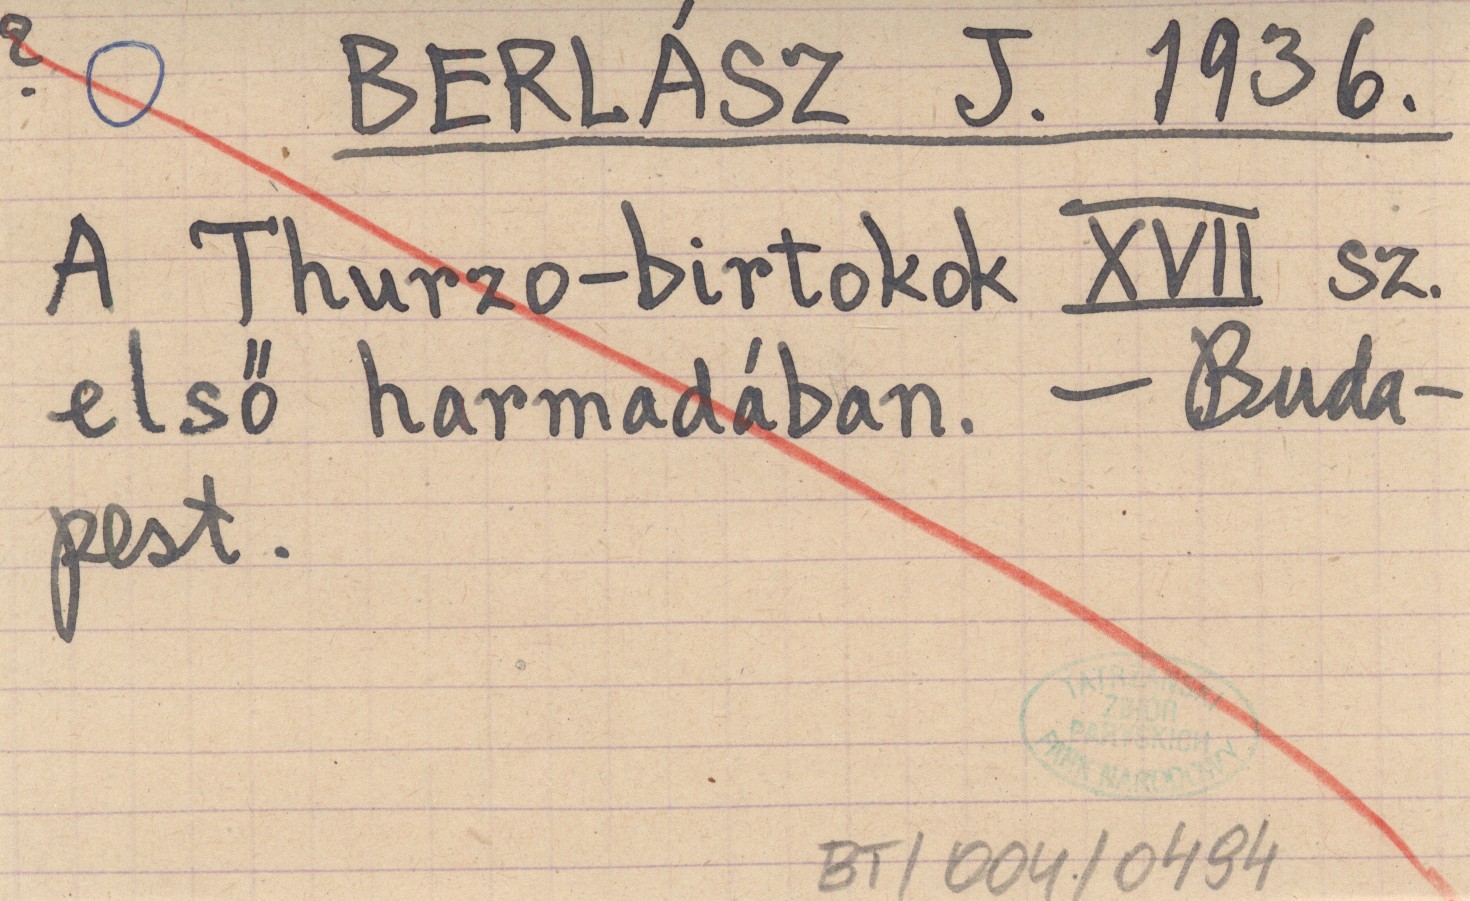 ?
BERLÁSZ J. 1936.
A Thurzo-birtokok XVII sz.
első harmadában. — Buda-
pest.
TATRZAŃSKI
ZBIÓR
PARYSKICH
PARK NARODOWY
BT/004/0494